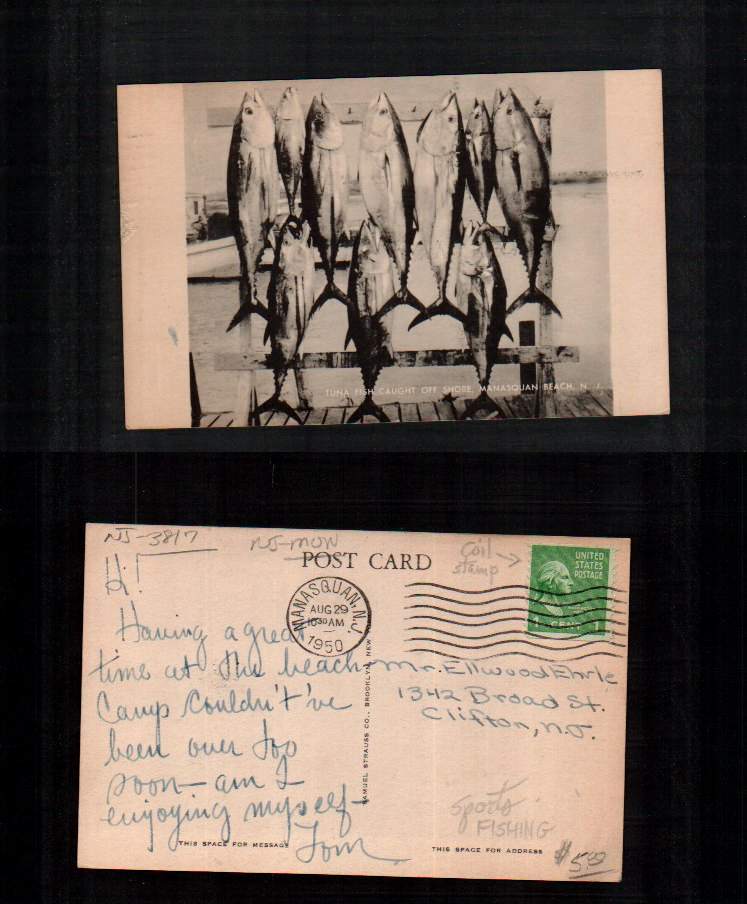 TUNA FISH CAUGHT OFF SHORE, MANASQUAN BEACH, N. J.
NJ-3817
NJ-MON
POST CARD
Coil
stamp
UNITED
STATES
POSTAGE
1 CENT 1
MANASQUAN, N.J.
AUG 29
10 30 AM
1950
Hi!
Having a great
time at the beach-
Camp couldn't've
been over too
soon - am I
enjoying myself -
Tom
Mr. Ellwood Ehrle
1342 Broad St.
Clifton, N.J.
SAMUEL STRAUSS CO., BROOKLYN, NEW
sports
FISHING
$5.00
THIS SPACE FOR MESSAGE
THIS SPACE FOR ADDRESS